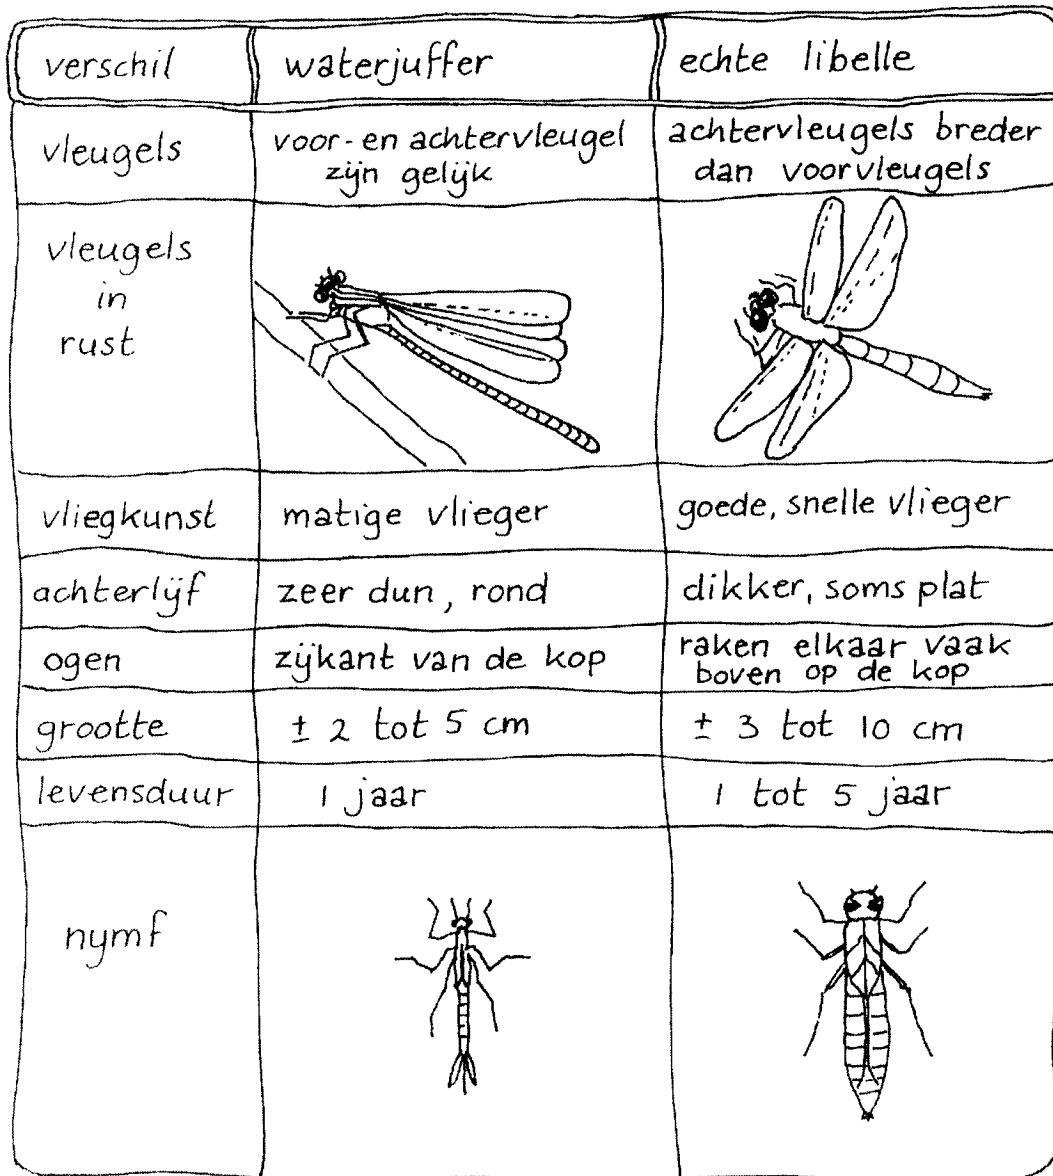 verschil waterjuffer echte libelle
vleugels
voor- en achtervleugel
zijn gelijk
achtervleugels breder
dan voorvleugels
vleugels
in
rust
vliegkunst matige vlieger goede, snelle vlieger
achterlijf zeer dun, rond dikker, soms plat
ogen zijkant van de kop
raken elkaar vaak
boven op de kop
grootte ± 2 tot 5 cm ± 3 tot 10 cm
levensduur 1 jaar 1 tot 5 jaar
nymf